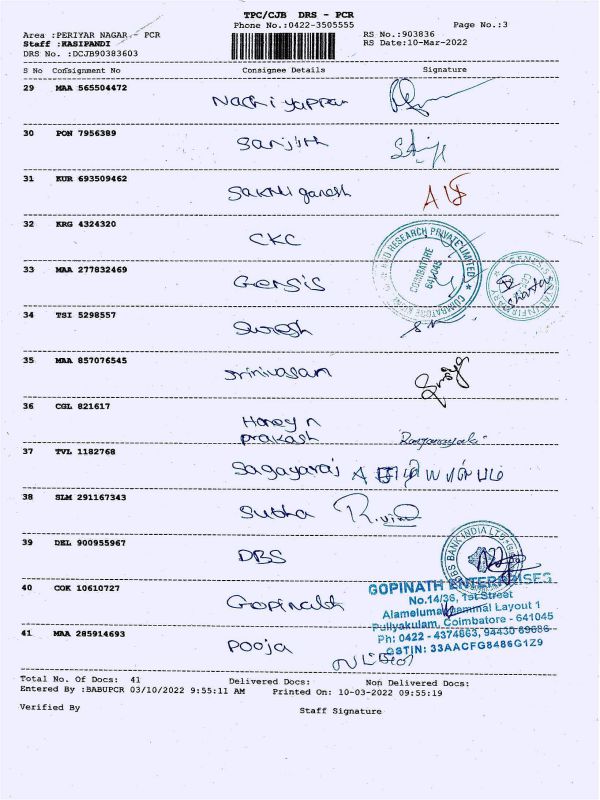 TPC/CJB DRS - PCR
Phone No.:0422-3505555
Page No.:3
Area :PERIYAR NAGAR - PCR
RS No.:903836
Staff :KASIPANDI
RS Date:10-Mar-2022
DRS No. :DCJB90383603
S No Consignment No Consignee Details Signature
29 MAA 565504472
Nachiyappan
30 PON 7956389
Sanjith
31 KUR 693509462
Sakthi ganesh
32 KRG 4324320
CKC
RESEARCH PRIVATE LIMITED
COIMBATORE
641 045
33 MAA 277832469
Gensis
34 TSI 5298557
Suresh
35 MAA 857076545
Srinivasan
36 CGL 821617
Honey n
prakash
37 TVL 1182768
Sagayaraj
38 SLM 291167343
Subha
39 DEL 900955967
DBS
DBS BANK INDIA LTD
40 COK 10610727
Gopinath
GOPINATH ENTERPRISES
No.14/36, 1st Street
Alamelumangammal Layout 1
Puliyakulam, Coimbatore - 641045
Ph: 0422 - 4374863, 94430 69686
GSTIN: 33AACFG8486G1Z9
41 MAA 285914693
Pooja
Total No. Of Docs: 41 Delivered Docs: Non Delivered Docs:
Entered By :BABUPCR 03/10/2022 9:55:11 AM Printed On: 10-03-2022 09:55:19
Verified By Staff Signature